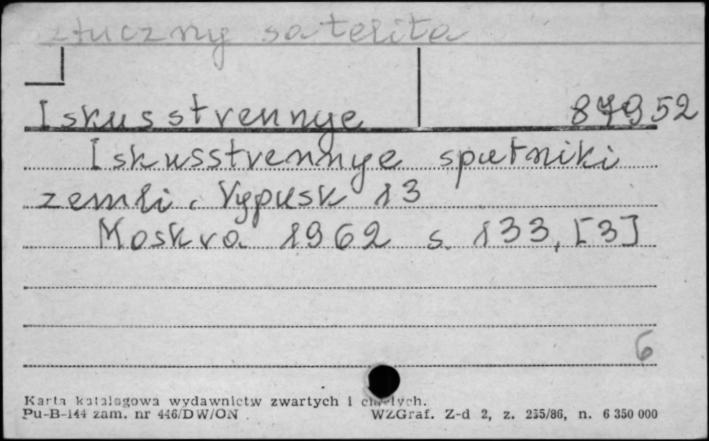 sztuczny satelita
Iskusstvennye 87952
Iskusstvennye sputniki
zemli. Vypusk 13
Moskva 1962 s. 133, [3]
6
Karta katalogowa wydawnictw zwartych i ciągłych.
Pu-B-144 zam. nr 446/DW/ON WZGraf. Z-d 2, z. 255/86, n. 6 350 000